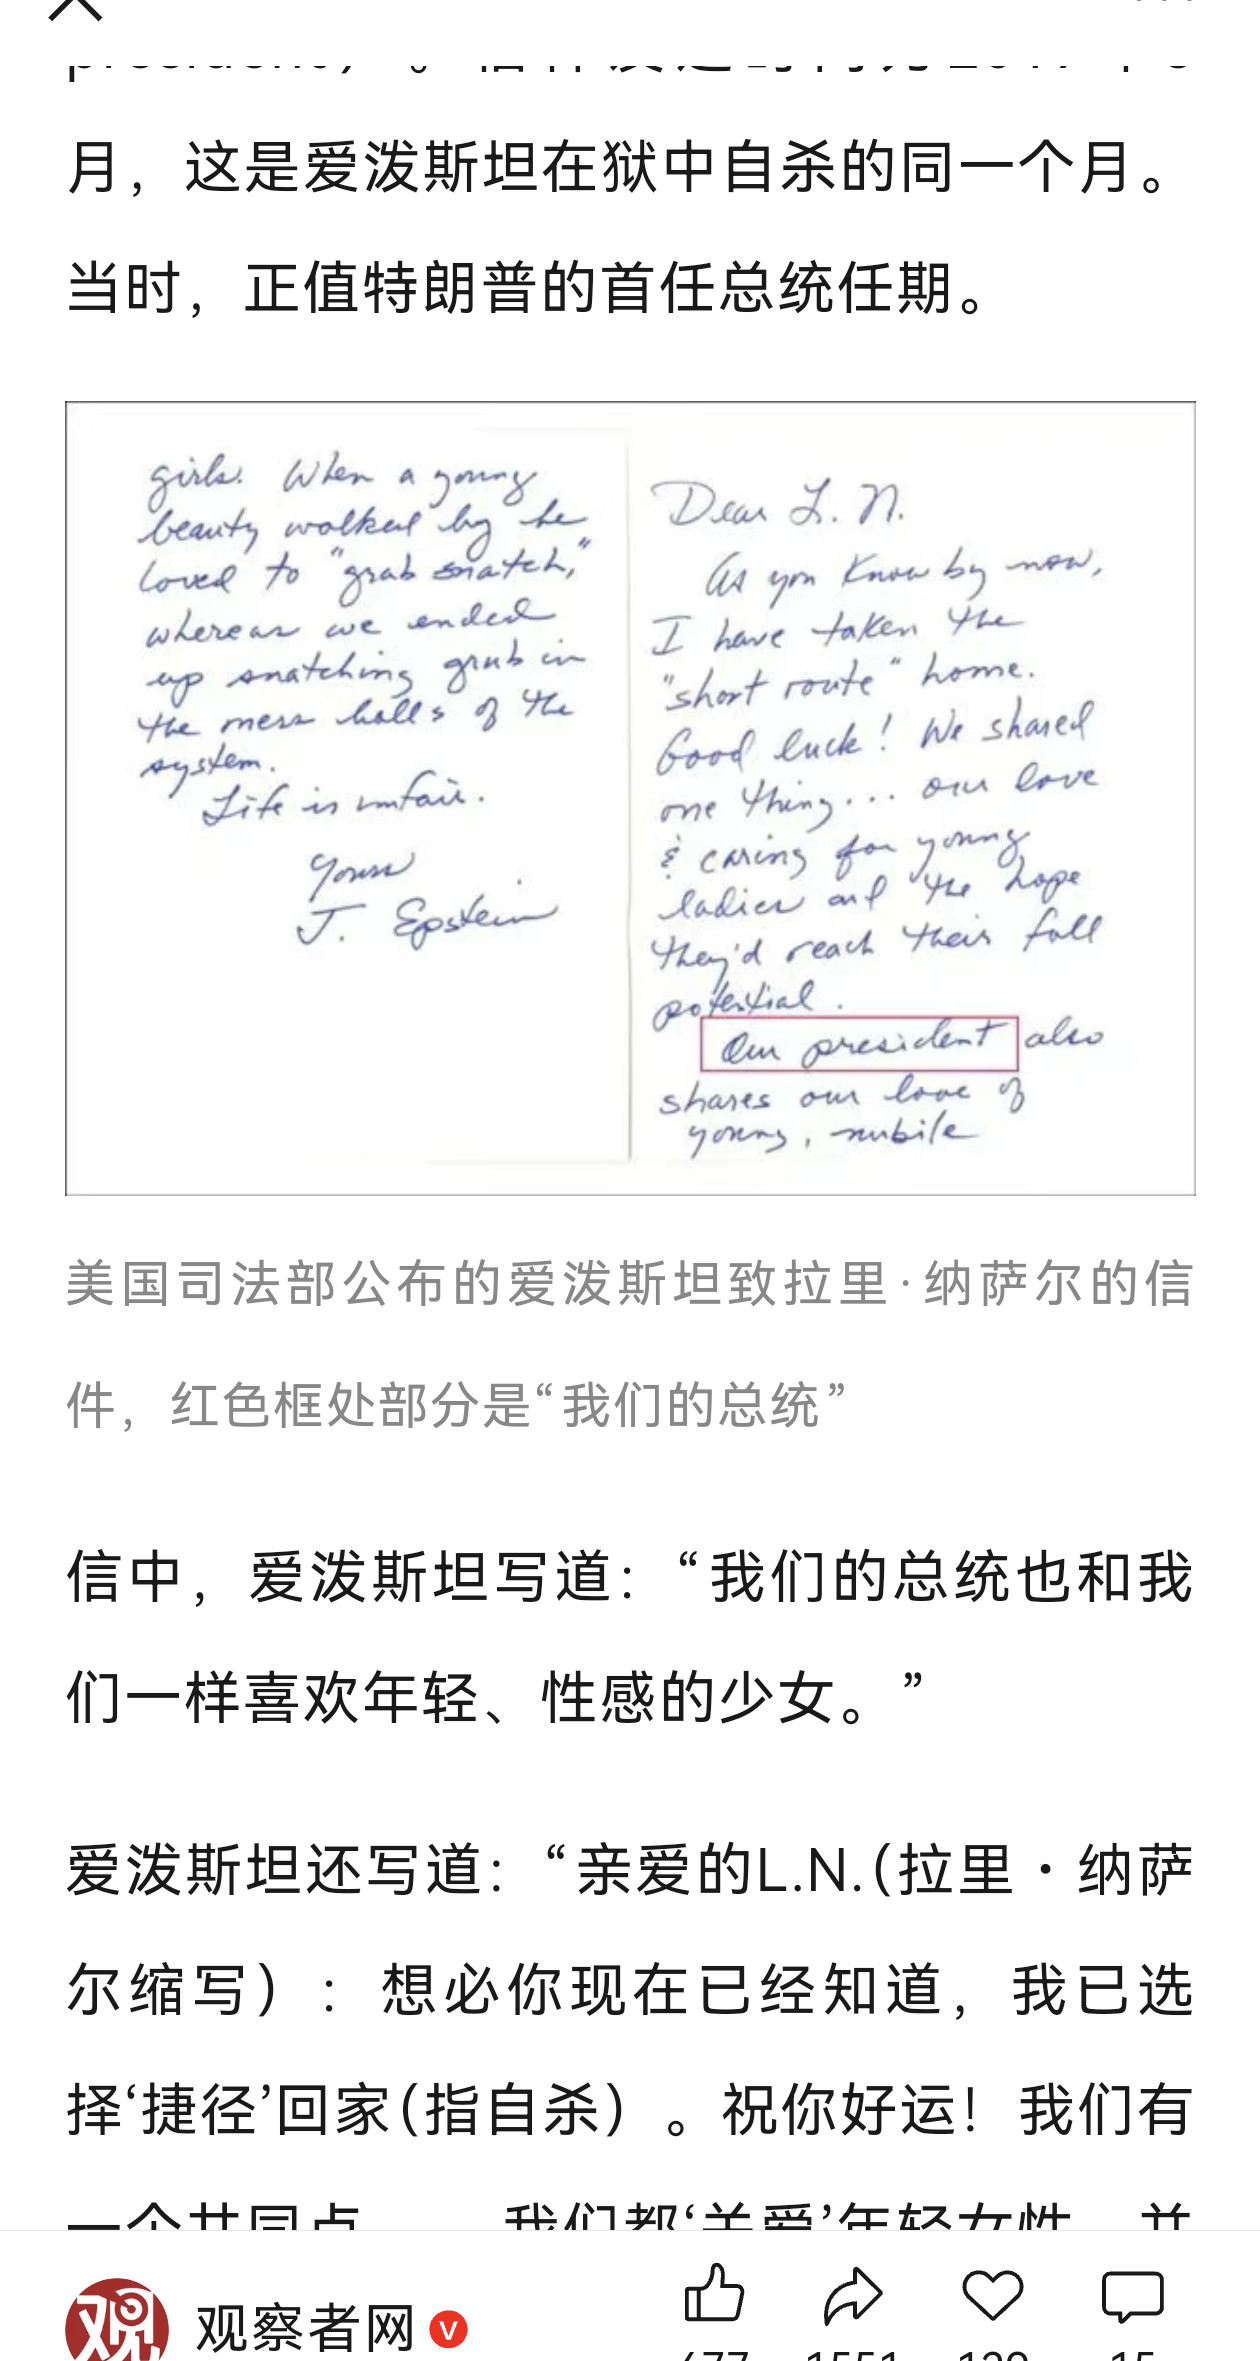 月，这是爱泼斯坦在狱中自杀的同一个月。
当时，正值特朗普的首任总统任期。
girls. When a young
beauty walked by he
loved to "grab snatch,"
whereas we ended
up snatching grub in
the mess halls of the
system.
Life is unfair.
Yours
J. Epstein
Dear L. N.
As you know by now,
I have taken the
"short route" home.
Good luck! We shared
one thing... our love
& caring for young
ladies and the hope
they'd reach their full
potential.
Our president also
shares our love of
young, nubile
美国司法部公布的爱泼斯坦致拉里·纳萨尔的信
件，红色框处部分是“我们的总统”
信中，爱泼斯坦写道：“我们的总统也和我
们一样喜欢年轻、性感的少女。”
爱泼斯坦还写道：“亲爱的L.N.(拉里·纳萨
尔缩写）：想必你现在已经知道，我已选
择‘捷径’回家(指自杀）。祝你好运！我们有
一个共同点……我们都‘关爱’年轻女性，并
观
观察者网
V